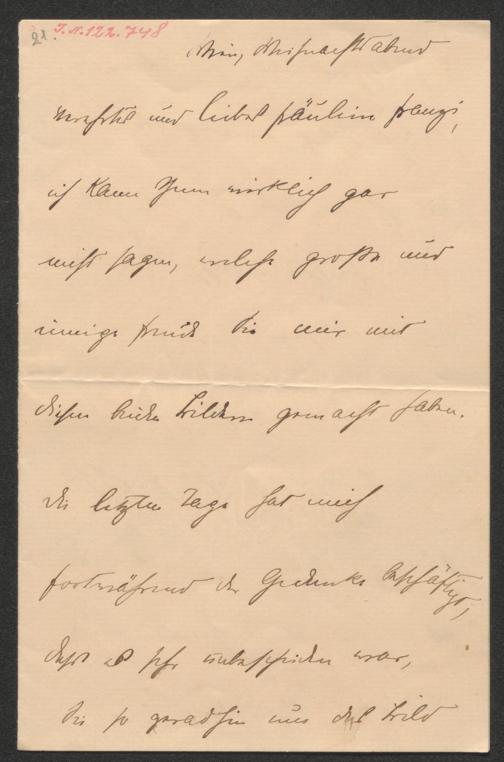 21.
I.N.122.748
Wien, Weihnachtsabend
Verehrtes und liebes Fräulein Franzi,
ich kann Ihnen wirklich gar
nicht sagen, welche große und
innige Freude Sie mir mit
diesen beiden Bildern gemacht haben.
Die letzten Tage hat mich
fortwährend der Gedanke beschäftigt,
dass es sehr unbescheiden war,
Sie so geradhin um das Bild